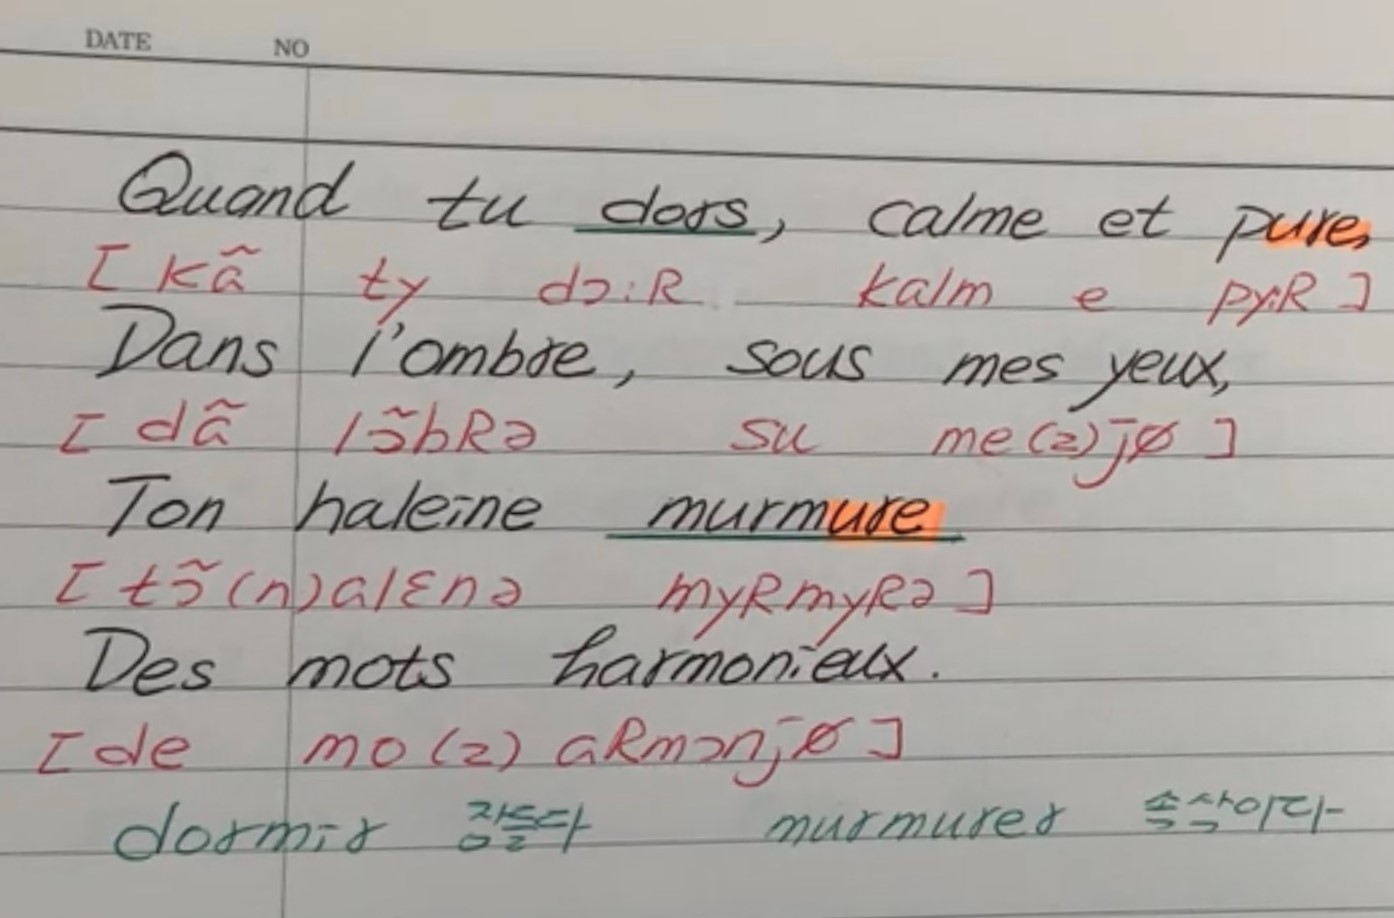 DATE NO
Quand tu dors, calme et pure,
[ kã ty dɔ:R kalm e py:R ]
Dans l'ombre, sous mes yeux,
[ dã lɔ̃bRə su me(z)jø ]
Ton haleine murmure
[ tɔ̃(n)alɛnə myRmyRə ]
Des mots harmonieux.
[ de mo(z) aRmɔnjø ]
dormir 잠들다 murmurer 속삭이다